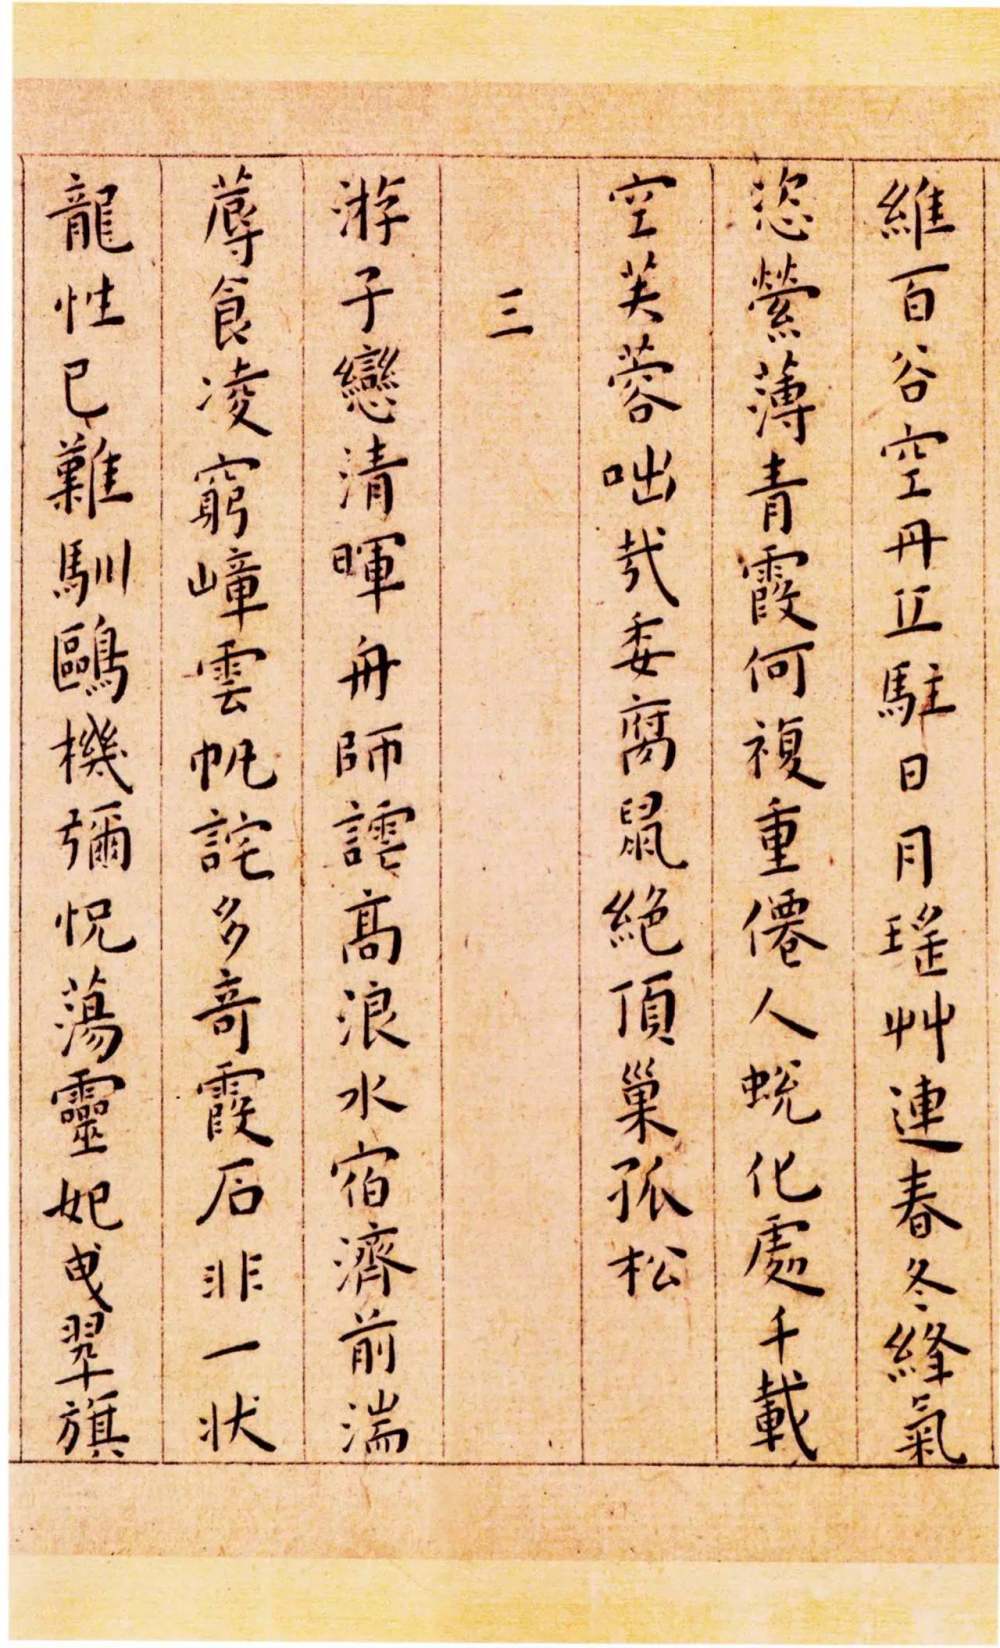 維百谷空丹丘駐日月瑤艸連春冬絳氣
恣縈薄青霞何複重僊人蛻化處千載
空芙蓉咄哉委腐鼠絕頂巢孤松
三
游子戀清暉舟師謣高浪水宿濟前湍
蓐食凌窮嶂雲帆詫多奇霞石非一狀
龍性已難馴鷗機彌怳蕩靈妃曵翠旗